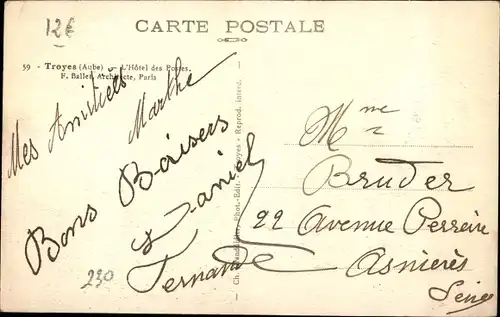 12€
CARTE POSTALE
59 - Troyes (Aube) - L'Hôtel des Postes.
F. Ballet, Architecte, Paris
Mes Amitiés
Marthe
Bons Baisers
Daniel
Fernande
230
Phot.-Édit. Troyes - Reprod. interd.
Mme
Bruder
22 Avenue Perreire
Asnières
Seine